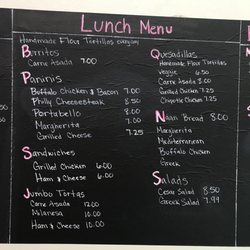 Lunch Menu
Handmade Flour Tortillas everyday
Burritos
Carne Asada 7.00
Paninis
Buffalo Chicken & Bacon 7.00
Philly Cheesesteak 8.50
Portabello 8.00
Margherita 7.25
Grilled Cheese 7.25
Sandwiches
Grilled Chicken 6.00
Ham & Cheese 6.00
Jumbo Tortas
Carne Asada 12.00
Milanesa 10.00
Ham & Cheese 10.00
Quesadillas
Handmade Flour Tortillas
Veggie 6.50
Carne Asada
Grilled Chicken 7.25
Chipotle Chicken 7.25
Naan Bread 8.00
Margherita
Mediterranean
Buffalo Chicken
Greek
Salads
Cesar Salad 8.50
Greek Salad 7.99